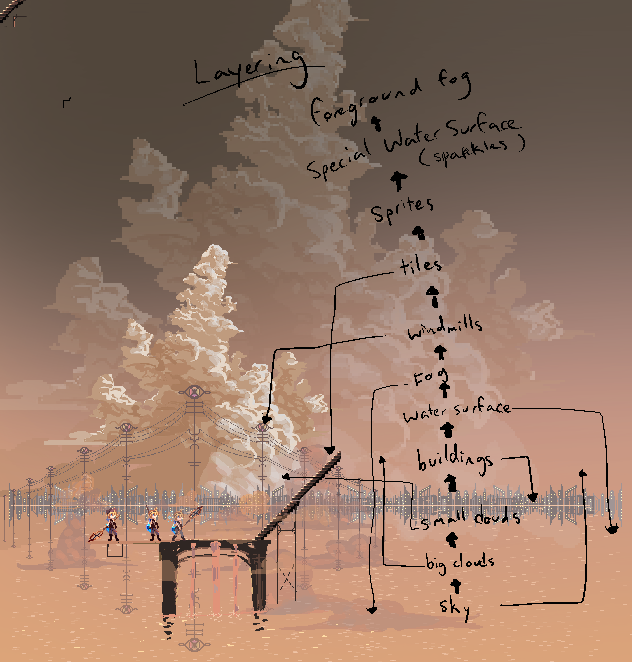 Layering
foreground fog
Special Water Surface
(sparkles)
Sprites
tiles
windmills
Fog
water surface
buildings
small clouds
big clouds
sky